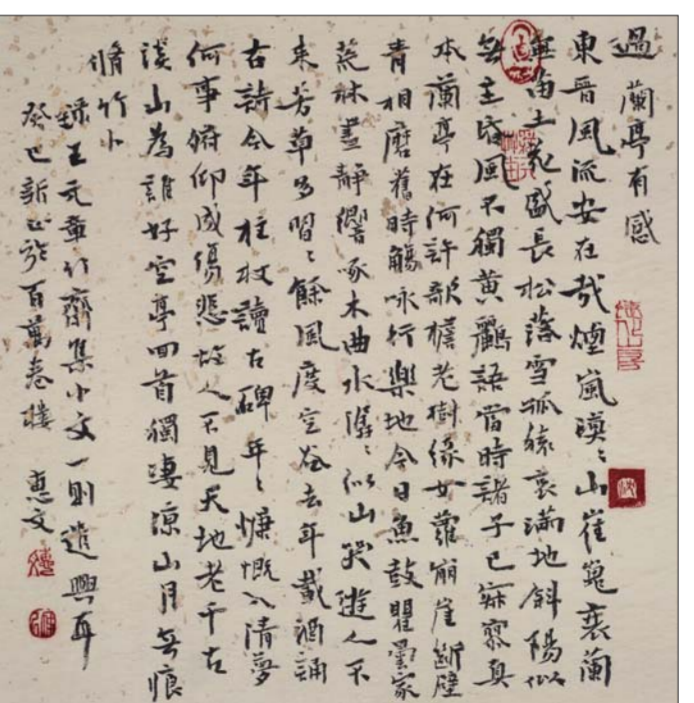 過蘭亭有感
東晉風流安在哉煙嵐漠〻山崔嵬衰蘭
無苗土花盛長松落雪孤猿哀滿地斜陽似
無主昏風不獨黃鸝語當時諸子已寂寥真
本蘭亭在何許欹檐老樹緣女蘿崩崖斷壁
青相磨舊時觴咏行樂地今日魚鼓瞿曇家
荒林晝靜響啄木曲水潺〻似山哭遊人不
來芳草多習〻餘風度空谷去年載酒誦
古詩今年柱杖讀古碑年〻慷慨入清夢
何事俯仰成傷悲故人不見天地老千古
溪山為誰好空亭回首獨淒涼山月無痕
脩竹小
録王元章竹齋集小文一則遣興耳
癸巳新正於百萬卷樓 惠文